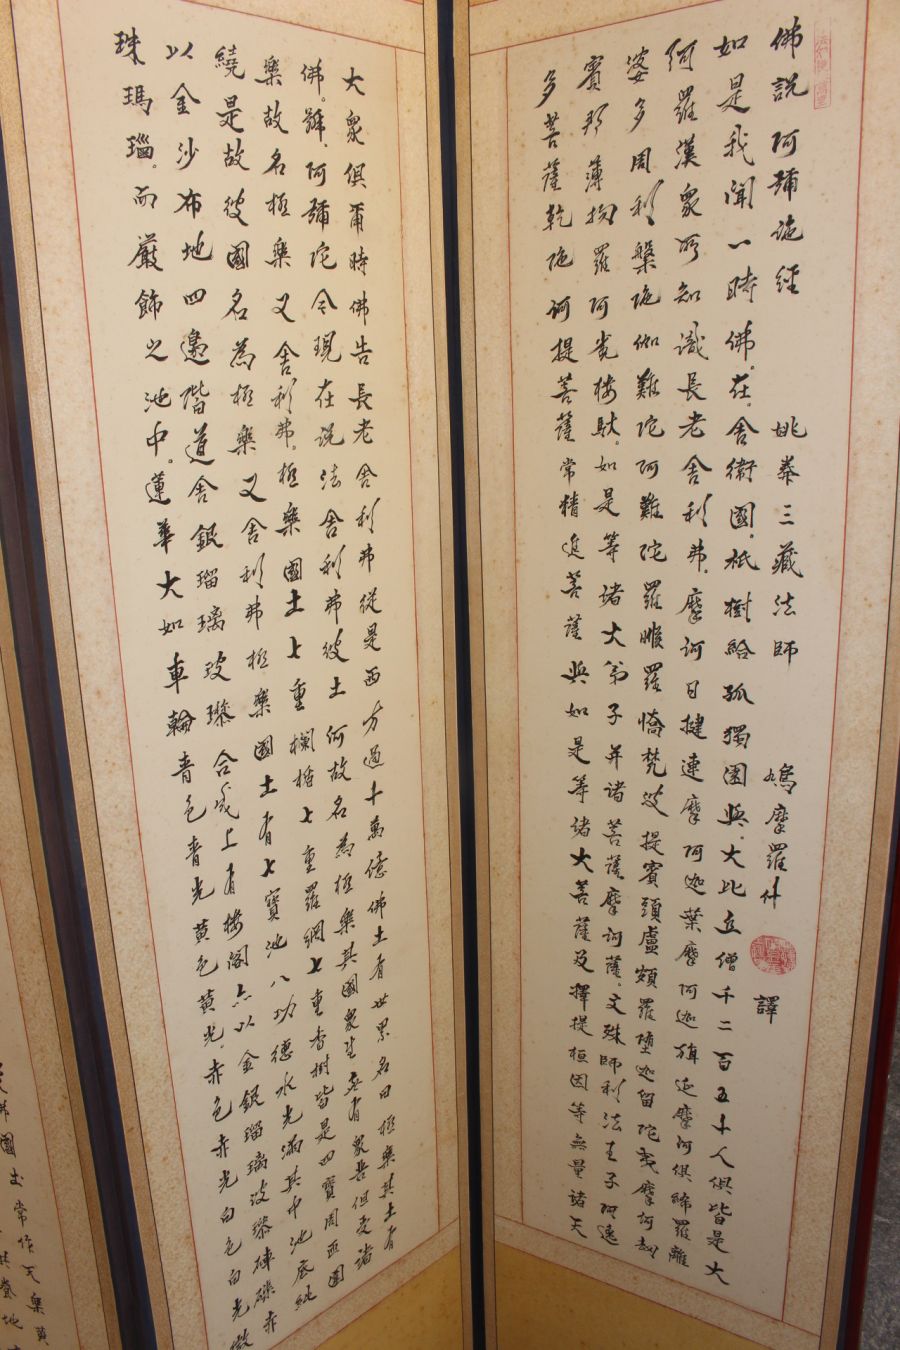 佛說阿彌陀經 姚秦三藏法師 鳩摩羅什 譯
如是我聞一時佛在舍衛國祇樹給孤獨園與大比丘僧千二百五十人俱皆是大
阿羅漢眾所知識長老舍利弗摩訶目揵連摩訶迦葉摩訶迦旃延摩訶俱絺羅離
婆多周利槃陀伽難陀阿難陀羅睺羅憍梵波提賓頭盧頗羅墮迦留陀夷摩訶劫
賓那薄拘羅阿㝹樓馱如是等諸大弟子并諸菩薩摩訶薩文殊師利法王子阿逸
多菩薩乾陀訶提菩薩常精進菩薩與如是等諸大菩薩及釋提桓因等無量諸天
大眾俱爾時佛告長老舍利弗從是西方過十萬億佛土有世界名曰極樂其土有
佛號阿彌陀今現在說法舍利弗彼土何故名為極樂其國眾生無有眾苦但受諸
樂故名極樂又舍利弗極樂國土七重欄楯七重羅網七重香樹皆是四寶周匝圍
繞是故彼國名為極樂又舍利弗極樂國土有七寶池八功德水充滿其中池底純
以金沙布地四邊階道舍銀瑠璃玻瓈合成上有樓閣亦以金銀瑠璃玻瓈硨磲赤
珠瑪瑙而嚴飾之池中蓮華大如車輪青色青光黃色黃光赤色赤光白色白光微
佛國土常作天樂黃